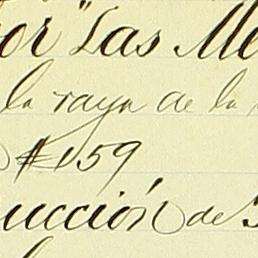 or "Las Me
la raya de la
#159
ucción de